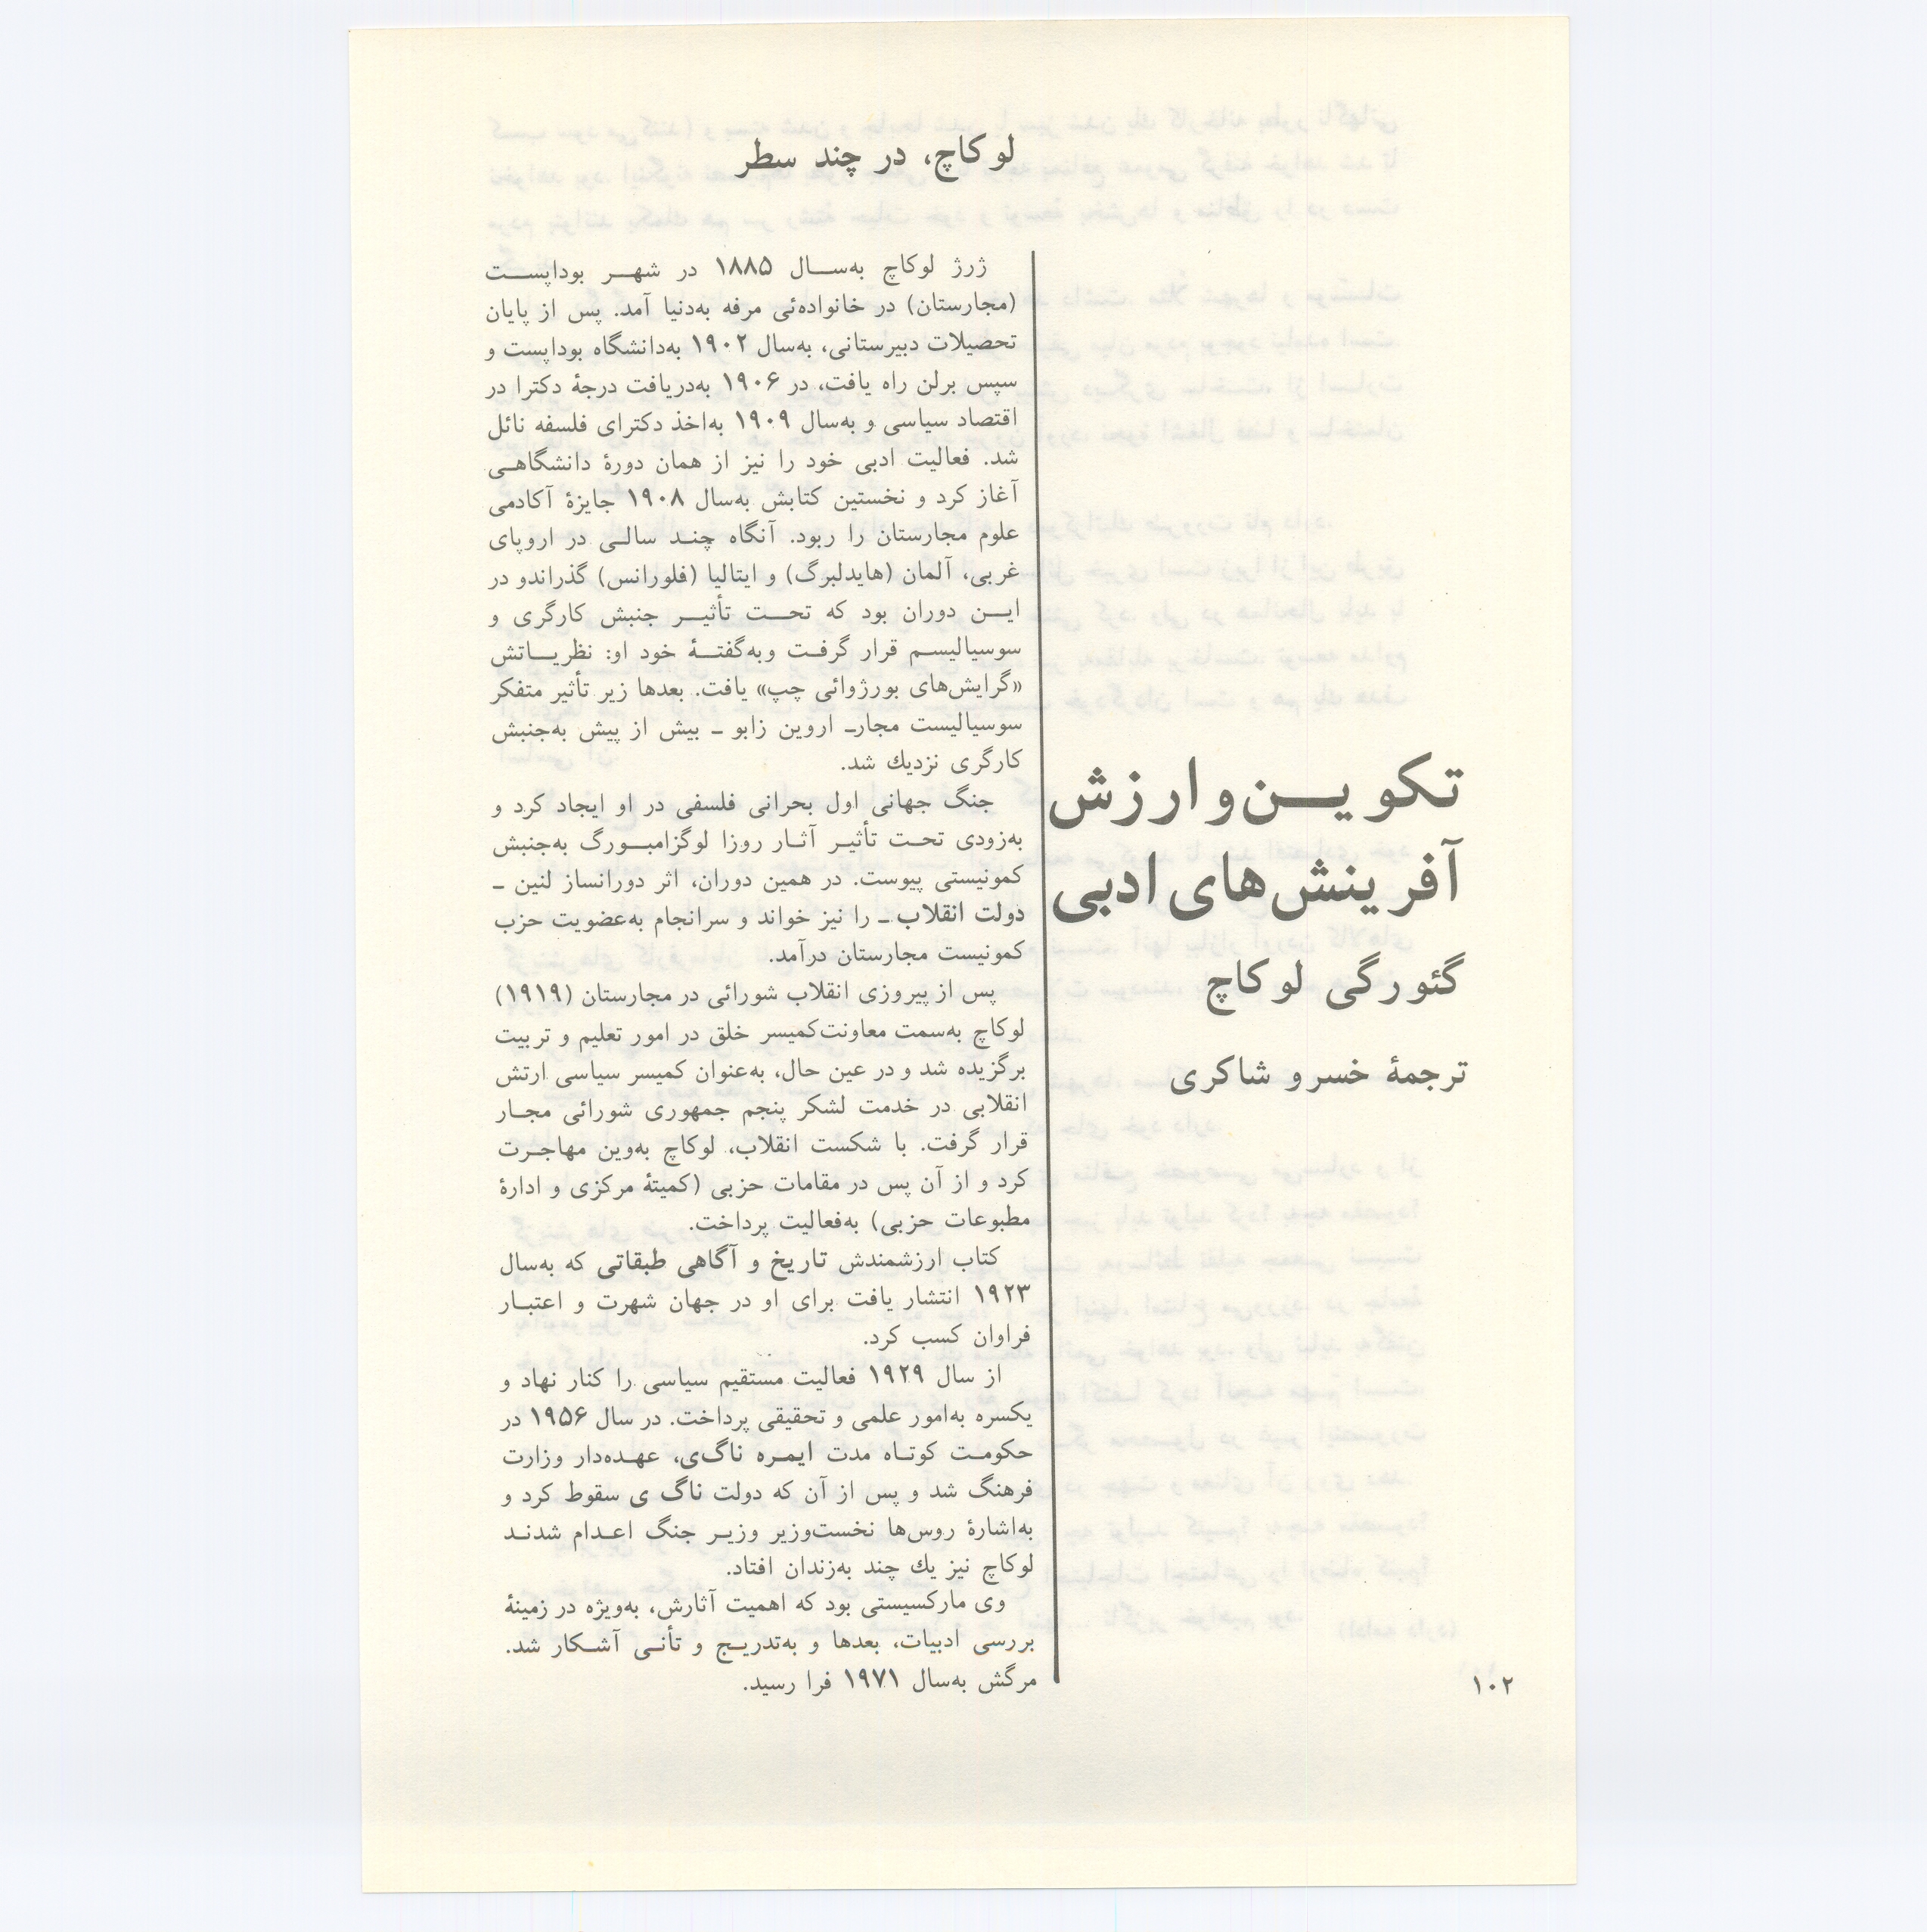 تکوین و ارزش
آفرینش‌های ادبی
گئورگی لوکاچ
ترجمهٔ خسرو شاکری
لوکاچ، در چند سطر
ژرژ لوکاچ به‌سال ۱۸۸۵ در شهر بوداپست
(مجارستان) در خانواده‌ئی مرفه به‌دنیا آمد. پس از پایان
تحصیلات دبیرستانی، به‌سال ۱۹۰۲ به‌دانشگاه بوداپست و
سپس برلن راه یافت، در ۱۹۰۶ به‌دریافت درجهٔ دکترا در
اقتصاد سیاسی و به‌سال ۱۹۰۹ به‌اخذ دکترای فلسفه نائل
شد. فعالیت ادبی خود را نیز از همان دورهٔ دانشگاهی
آغاز کرد و نخستین کتابش به‌سال ۱۹۰۸ جایزهٔ آکادمی
علوم مجارستان را ربود. آنگاه چند سالی در اروپای
غربی، آلمان (هایدلبرگ) و ایتالیا (فلورانس) گذراندو در
این دوران بود که تحت تأثیر جنبش کارگری و
سوسیالیسم قرار گرفت وبه‌گفتهٔ خود او: نظریاتش
«گرایش‌های بورژوائی چپ» یافت. بعدها زیر تأثیر متفکر
سوسیالیست مجارـ اروین زابو ـ بیش از پیش به‌جنبش
کارگری نزدیك شد.
جنگ جهانی اول بحرانی فلسفی در او ایجاد کرد و
به‌زودی تحت تأثیر آثار روزا لوگزامبورگ به‌جنبش
کمونیستی پیوست. در همین دوران، اثر دورانساز لنین ـ
دولت انقلاب ـ را نیز خواند و سرانجام به‌عضویت حزب
کمونیست مجارستان درآمد.
پس از پیروزی انقلاب شورائی در مجارستان (۱۹۱۹)
لوکاچ به‌سمت معاونت‌کمیسر خلق در امور تعلیم و تربیت
برگزیده شد و در عین حال، به‌عنوان کمیسر سیاسی ارتش
انقلابی در خدمت لشکر پنجم جمهوری شورائی مجار
قرار گرفت. با شکست انقلاب، لوکاچ به‌وین مهاجرت
کرد و از آن پس در مقامات حزبی (کمیتهٔ مرکزی و ادارهٔ
مطبوعات حزبی) به‌فعالیت پرداخت.
کتاب ارزشمندش تاریخ و آگاهی طبقاتی که به‌سال
۱۹۲۳ انتشار یافت برای او در جهان شهرت و اعتبار
فراوان کسب کرد.
از سال ۱۹۲۹ فعالیت مستقیم سیاسی را کنار نهاد و
یکسره به‌امور علمی و تحقیقی پرداخت. در سال ۱۹۵۶ در
حکومت کوتاه مدت ایمره ناگ‌ی، عهده‌دار وزارت
فرهنگ شد و پس از آن که دولت ناگ ی سقوط کرد و
به‌اشارهٔ روس‌ها نخست‌وزیر وزیر جنگ اعدام شدند
لوکاچ نیز یك چند به‌زندان افتاد.
وی مارکسیستی بود که اهمیت آثارش، به‌ویژه در زمینهٔ
بررسی ادبیات، بعدها و به‌تدریج و تأنی آشکار شد.
مرگش به‌سال ۱۹۷۱ فرا رسید.
۱۰۲